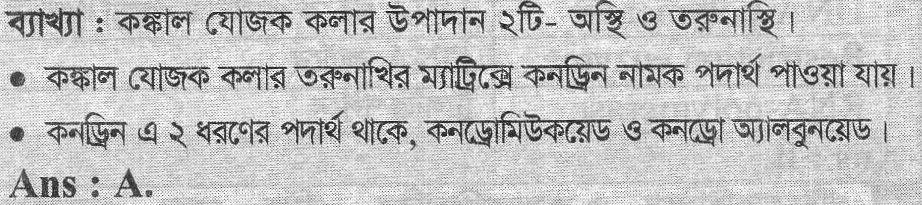 ব্যাখ্যা : কঙ্কাল যোজক কলার উপাদান ২টি- অস্থি ও তরুনাস্থি ।
• কঙ্কাল যোজক কলার তরুনাখির ম্যাট্রিক্সে কনড্রিন নামক পদার্থ পাওয়া যায় ।
• কনড্রিন এ ২ ধরণের পদার্থ থাকে, কনড্রোমিউকয়েড ও কনড্রো অ্যালবুনয়েড ।
Ans : A.